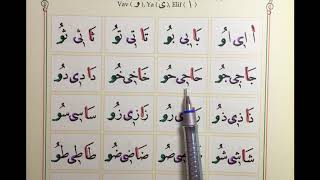 Vav ( و ), Ya ( ى ), Elif ( ا )
اَ ا اِى اُو بَا بِى بُو تَا تِى تُو ثَا ثِى ثُو
جَا جِى جُو حَا حِى حُو خَا خِى خُو دَا دِى دُو
ذَا ذِى ذُو رَا رِى رُو زَا زِى زُو سَا سِى سُو
شَا شِى شُو صَا صِى صُو ضَا ضِى ضُو طَا طِى طُو